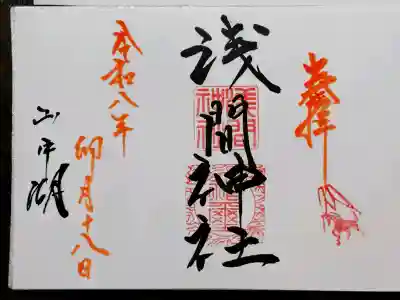 奉拝
浅間神社
令和八年
卯月十八日
山中湖